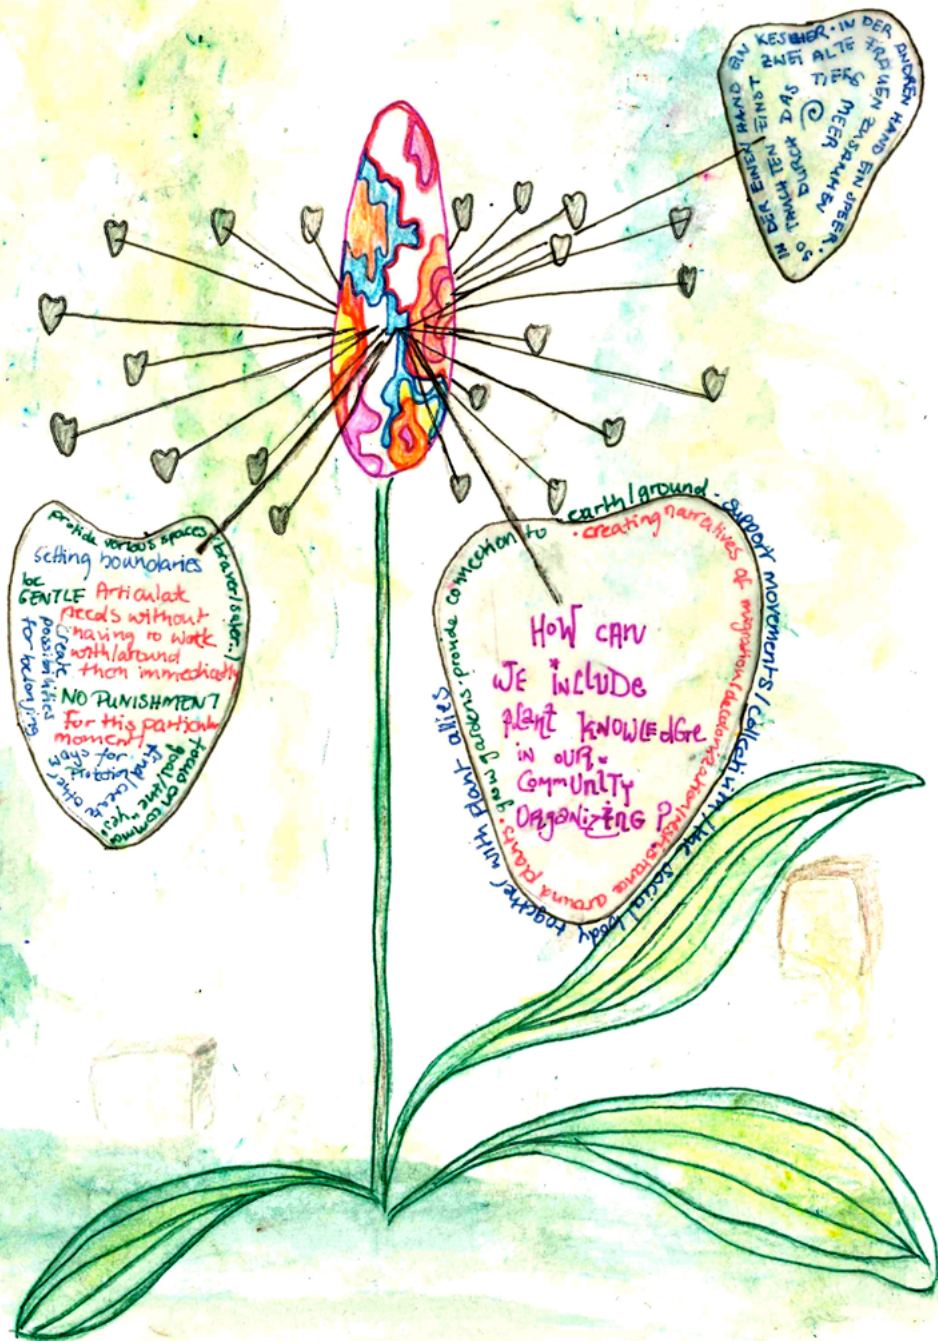 IN DER EINEN HAND EIN KESCHER · IN DER ANDREN HAND EIN SPEER ·
SO TAUCHTEN EINST ZWEI ALTE FRAUEN ZUSAMMEN
DURCH DAS TIEFE MEER
provide various spaces (braver/safer..)
setting boundaries
be
GENTLE
Articulate
needs without
having to work
with/around
them immediately
create
possibilities
for belonging
NO PUNISHMENT
For this particular
moment
find/create other
ways for
protection
focus on common
goal/the "yes"
HOW CAN
WE iNCLUDe
PLANT KNOWLEdGe
iN OUR
COMMUNiTY
ORgANiZiNG ?
· grow gardens · provide connection to earth/ground · support movements/collectivism/the social body together with plant allies
· creating narratives of migration/decolonization/resistance around plants